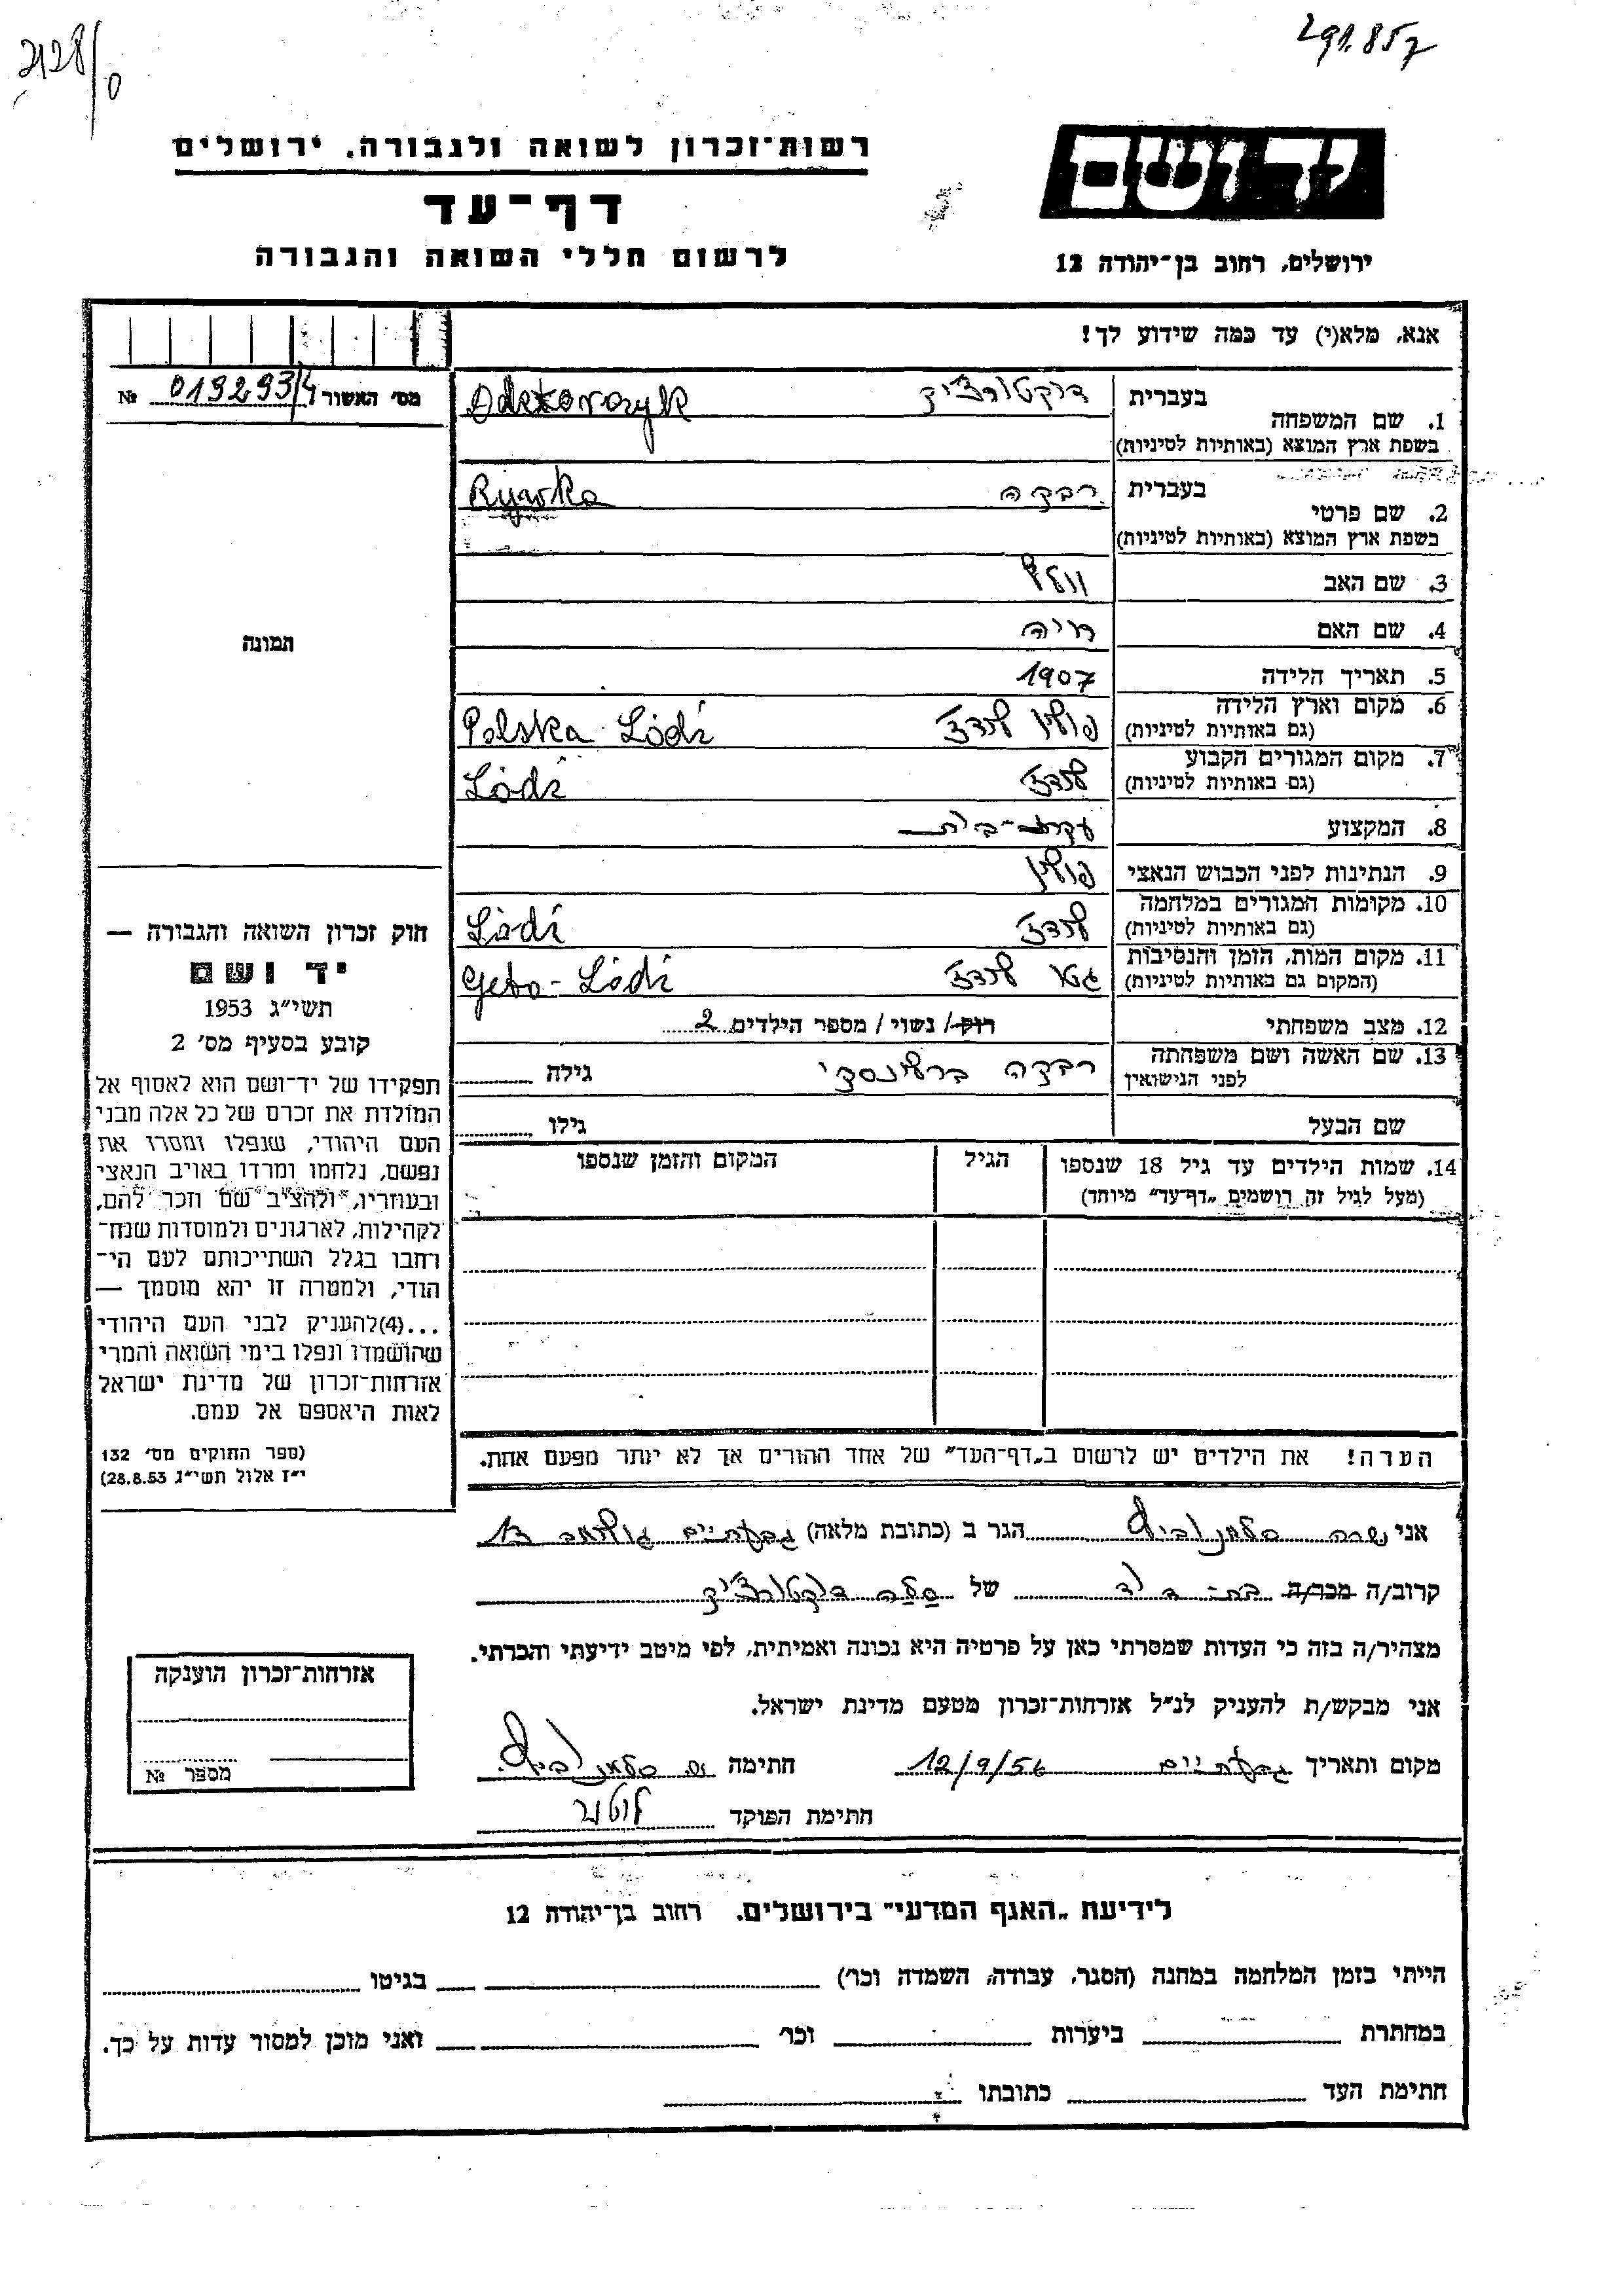 2128/0
291.857
יד ושם
רשות־זכרון לשואה ולגבורה, ירושלים
דף־עד
לרשום חללי השואה והגבורה
ירושלים, רחוב בן־יהודה 12
אנא, מלא(י) עד כמה שידוע לך!
מס׳ האשור 019293/4 №
תמונה
1. שם המשפחה בעברית דוקטורצ׳יק
בשפת ארץ המוצא (באותיות לטיניות)
2. שם פרטי בעברית רבקה
בשפת ארץ המוצא (באותיות לטיניות) Rywka
3. שם האב וולף
4. שם האם חיה
5. תאריך הלידה 1907
6. מקום וארץ הלידה פולין לודז׳ Polska Lódź
(גם באותיות לטיניות)
7. מקום המגורים הקבוע לודז׳ Lódź
(גם באותיות לטיניות)
8. המקצוע עקרת-בית
9. הנתינות לפני הכבוש הנאצי פולין
10. מקומות המגורים במלחמה לודז׳ Lódź
(גם באותיות לטיניות)
11. מקום המות, הזמן והנסיבות גטו לודז׳ Geto - Lódź
(המקום גם באותיות לטיניות)
12. מצב משפחתי רוק/ נשוי/ מספר הילדים 2
13. שם האשה ושם משפחתה רבקה ברלינסקי גילה
לפני הנישואין
שם הבעל גילו
14. שמות הילדים עד גיל 18 שנספו הגיל המקום והזמן שנספו
(מעל לגיל זה רושמים „דף־עד״ מיוחד)
חוק זכרון השואה והגבורה —
יד ושם
תשי״ג 1953
קובע בסעיף מס׳ 2
תפקידו של יד־ושם הוא לאסוף אל
המולדת את זכרם של כל אלה מבני
העם היהודי, שנפלו ומסרו את
נפשם, נלחמו ומרדו באויב הנאצי
ובעוזריו, ולהציב שם וזכר להם,
לקהילות, לארגונים ולמוסדות שנח־
רחבו בגלל השתייכותם לעם הי־
הודי, ולמטרה זו יהא מוסמך —
...(4)להעניק לבני העם היהודי
שהושמדו ונפלו בימי השואה והמרי
אזרחות־זכרון של מדינת ישראל
לאות היאספם אל עמם.
(ספר החוקים מס׳ 132
י״ז אלול תשי״ג 28.8.53)
הערה! את הילדים יש לרשום ב„דף־העד״ של אחד ההורים אך לא יותר מפעם אחת.
אני שרה הגר ב (כתובת מלאה) גבעתיים 13
קרוב/ה מכר/ה בת-דוד של דוקטורצ׳יק
מצהיר/ה בזה כי העדות שמסרתי כאן על פרטיה היא נכונה ואמיתית, לפי מיטב ידיעתי והכרתי.
אני מבקש/ת להעניק לנ״ל אזרחות־זכרון מטעם מדינת ישראל.
מקום ותאריך גבעתיים 12/9/56 חתימה
חתימת הפוקד
אזרחות־זכרון הוענקה
מספר №
לידיעת „האגף המדעי״ בירושלים, רחוב בן־יהודה 12
הייתי בזמן המלחמה במחנה (הסגר, עבודה, השמדה וכו׳) בגיטו
במחתרת ביערות וכו׳ ואני מוכן למסור עדות על כך.
חתימת העד כתובתו